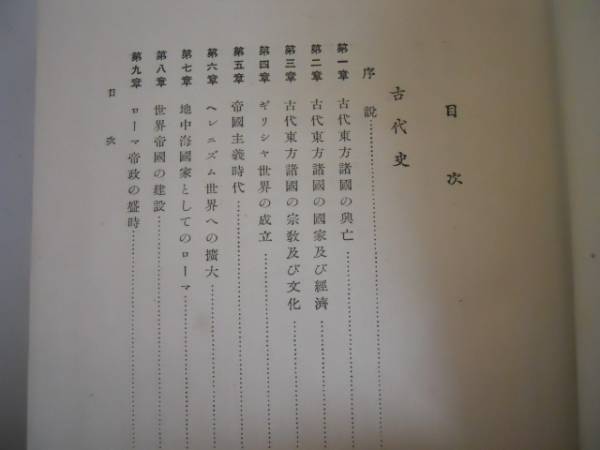 目次
古代史
序説
第一章 古代東方諸國の興亡
第二章 古代東方諸國の國家及び經濟
第三章 古代東方諸國の宗敎及び文化
第四章 ギリシヤ世界の成立
第五章 帝國主義時代
第六章 ヘレニズム世界への擴大
第七章 地中海國家としてのローマ
第八章 世界帝國の建設
第九章 ローマ帝政の盛時
目次